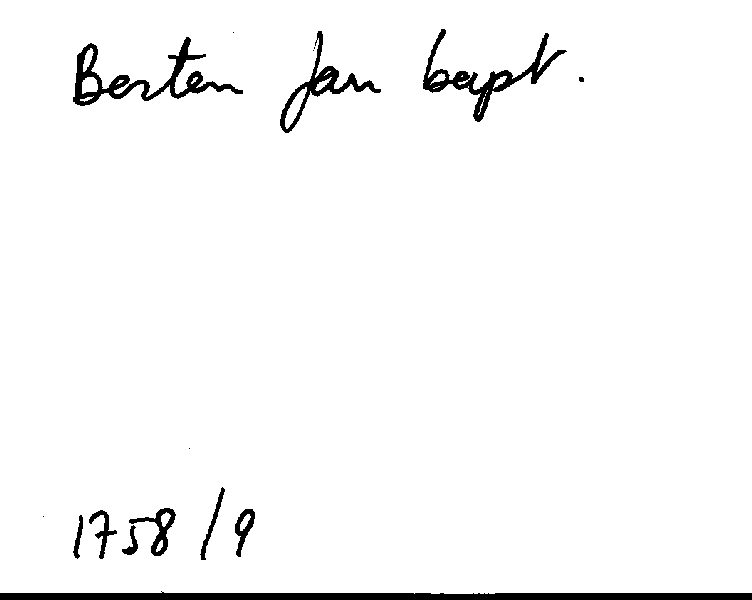 Berten Jan bapt.
1758/9